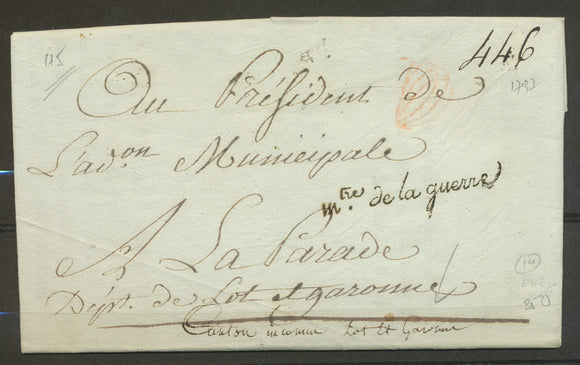 45
446
Au Président de
1797
L'adon Municipale
mtre de la guerre
A La Parade
14
Dépt. de Lot et garonne
Canton inconnu Lot et Garonne